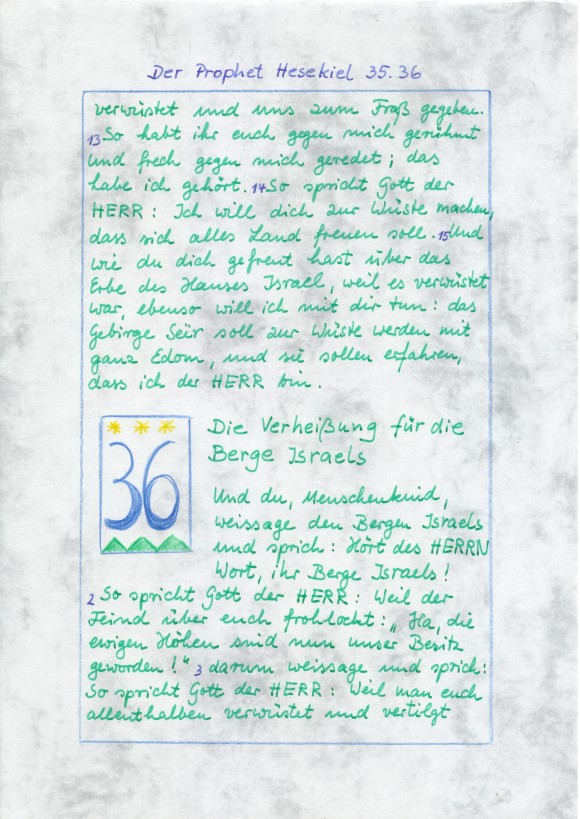 Der Prophet Hesekiel 35.36
verwüstet und uns zum Fraß gegeben.
13 So habt ihr euch gegen mich gerühmt
und frech gegen mich geredet; das
habe ich gehört. 14 So spricht Gott der
HERR: Ich will dich zur Wüste machen,
dass sich alles Land freuen soll. 15 Und
wie du dich gefreut hast über das
Erbe des Hauses Israel, weil es verwüstet
war, ebenso will ich mit dir tun: das
Gebirge Seïr soll zur Wüste werden mit
ganz Edom, und sie sollen erfahren,
dass ich der HERR bin.
36
Die Verheißung für die
Berge Israels
Und du, Menschenkind,
weissage den Bergen Israels
und sprich: Hört des HERRN
Wort, ihr Berge Israels!
2 So spricht Gott der HERR: Weil der
Feind über euch frohlockt: „Ha, die
ewigen Höhen sind nun unser Besitz
geworden!“ 3 darum weissage und sprich:
So spricht Gott der HERR: Weil man euch
allenthalben verwüstet und vertilgt